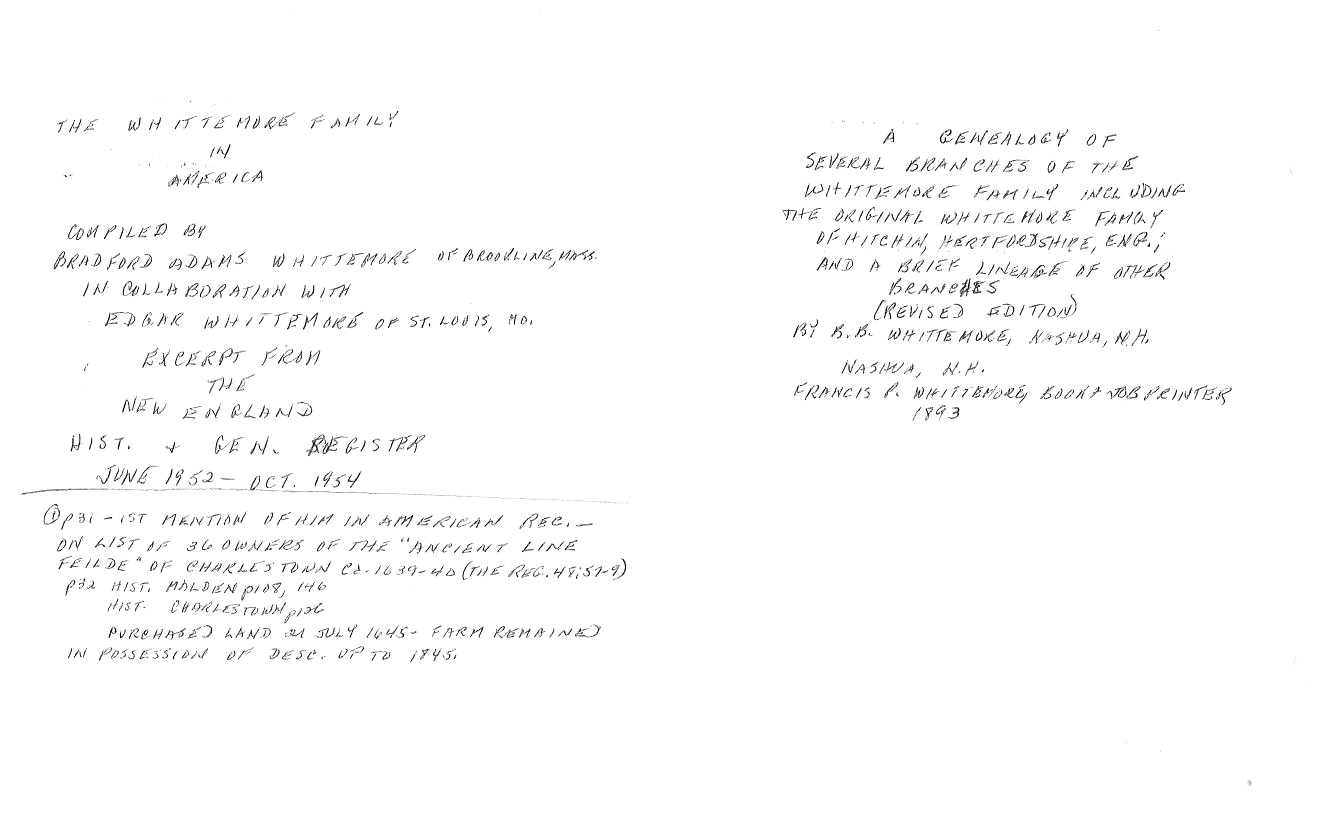 THE WHITTEMORE FAMILY
IN
AMERICA
COMPILED BY
BRADFORD ADAMS WHITTEMORE OF BROOKLINE, MASS.
IN COLLABORATION WITH
EDGAR WHITTEMORE OF ST. LOUIS, MO.
EXCERPT FROM
THE
NEW ENGLAND
HIST. + GEN. REGISTER
JUNE 1952 - OCT. 1954
① p31 - 1ST MENTION OF HIM IN AMERICAN REC. -
ON LIST OF 36 OWNERS OF THE "ANCIENT LINE
FEILDE" OF CHARLESTOWN CA. 1639-40 (THE REG. 48:57-9)
p32 HIST. MALDEN p108, 146
HIST. CHARLESTOWN p126
PURCHASED LAND 21 JULY 1645 - FARM REMAINED
IN POSSESSION OF DESC. UP TO 1845.
A GENEALOGY OF
SEVERAL BRANCHES OF THE
WHITTEMORE FAMILY INCLUDING
THE ORIGINAL WHITTEMORE FAMILY
OF HITCHIN, HERTFORDSHIRE, ENG.;
AND A BRIEF LINEAGE OF OTHER
BRANCHES
(REVISED EDITION)
BY B.B. WHITTEMORE, NASHUA, N.H.
NASHUA, N.H.
FRANCIS P. WHITTEMORE, BOOK + JOB PRINTER
1893